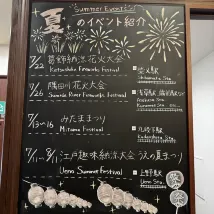 Summer Event(s)
夏のイベント紹介
7/22 葛飾納涼花火大会
Katsushika Fireworks Festival
柴又駅
Shibamata Sta.
隅田川花火大会
Sumida River Fireworks Festival
浅草駅
Asakusa
Kuramae Sta.
7/13~16 みたままつり
Mitama Festival
九段下駅
Kudanshita Sta.
江戸趣味納涼大会 うえの夏まつり
Ueno Summer Festival
上野駅
Ueno Sta.